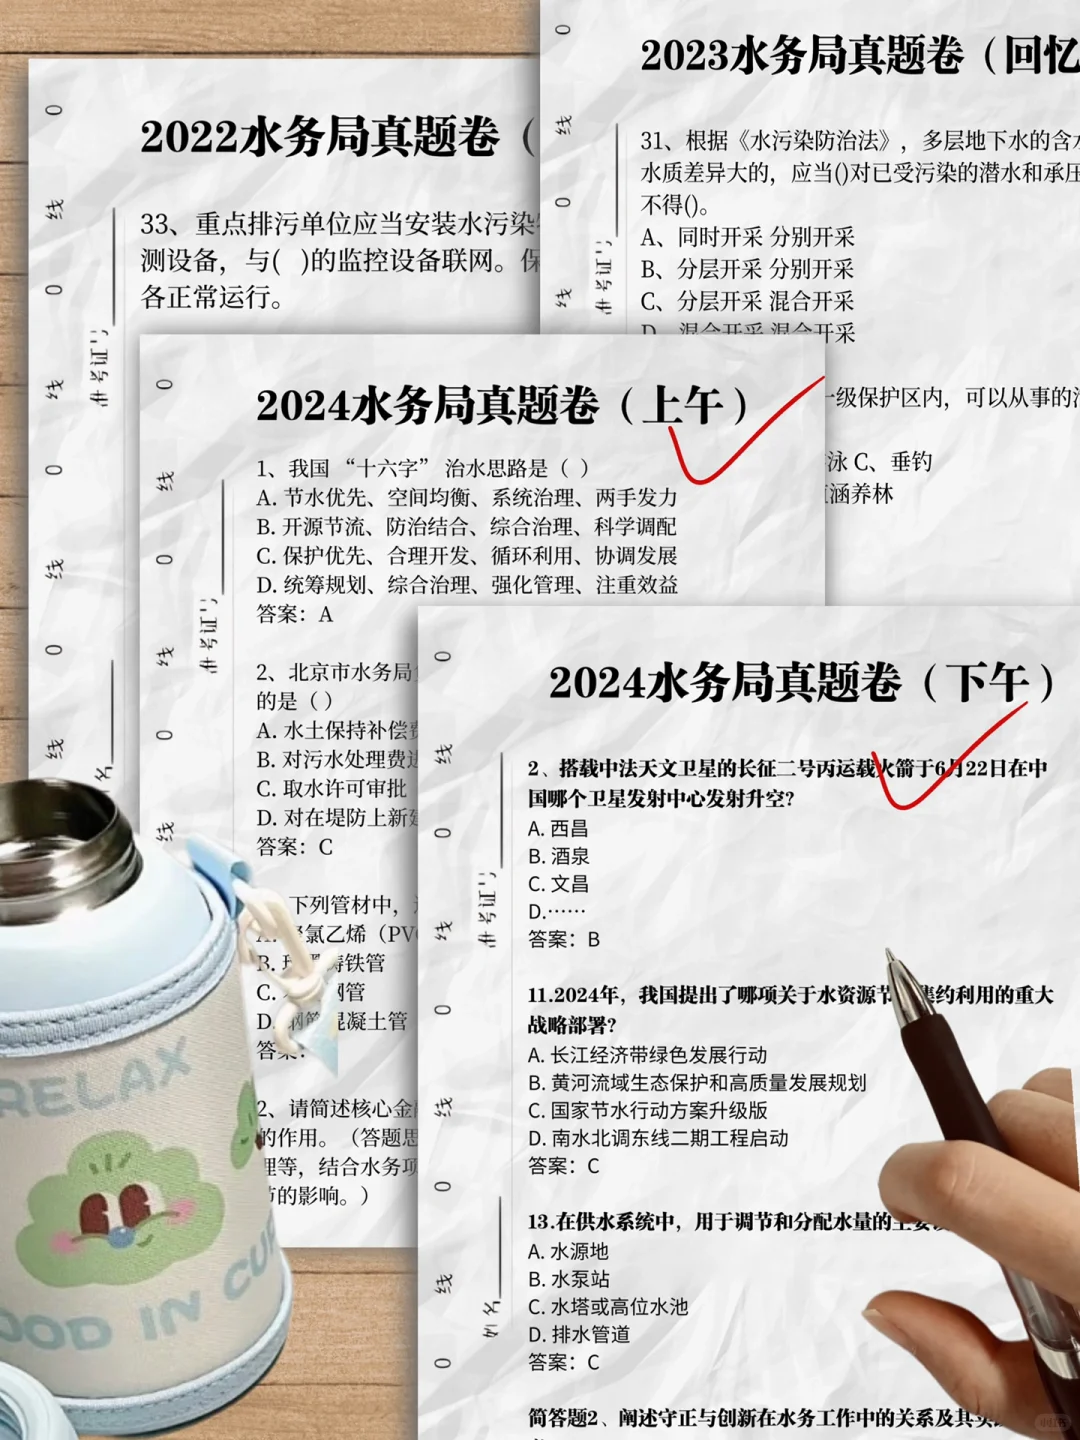 2022水务局真题卷（
33、重点排污单位应当安装水污染
测设备，与( )的监控设备联网。保
各正常运行。
2023水务局真题卷（回忆
31、根据《水污染防治法》，多层地下水的含水
水质差异大的，应当()对已受污染的潜水和承压
不得()。
A、同时开采 分别开采
B、分层开采 分别开采
C、分层开采 混合开采
D、混合开采 混合开采
一级保护区内，可以从事的活
泳 C、垂钓
涵养林
2024水务局真题卷（上午）
1、我国 “十六字” 治水思路是（ ）
A. 节水优先、空间均衡、系统治理、两手发力
B. 开源节流、防治结合、综合治理、科学调配
C. 保护优先、合理开发、循环利用、协调发展
D. 统筹规划、综合治理、强化管理、注重效益
答案：A
2、北京市水务局
的是（ ）
A. 水土保持补偿费
B. 对污水处理费
C. 取水许可审批
D. 对在堤防上新建
答案：C
下列管材中，
氯乙烯（PVC
B. 铸铁管
C. 钢管
D. 钢筋混凝土管
答案：
2、请简述核心金
的作用。（答题思
理等，结合水务项
节的影响。）
2024水务局真题卷（下午）
2、搭载中法天文卫星的长征二号丙运载火箭于6月22日在中
国哪个卫星发射中心发射升空?
A. 西昌
B. 酒泉
C. 文昌
D.……
答案：B
11.2024年，我国提出了哪项关于水资源节 集约利用的重大
战略部署?
A. 长江经济带绿色发展行动
B. 黄河流域生态保护和高质量发展规划
C. 国家节水行动方案升级版
D. 南水北调东线二期工程启动
答案：C
13.在供水系统中，用于调节和分配水量的主要
A. 水源地
B. 水泵站
C. 水塔或高位水池
D. 排水管道
答案：C
简答题2、阐述守正与创新在水务工作中的关系及其实
线
0
准考证号
姓名
RELAX
OOD IN CU